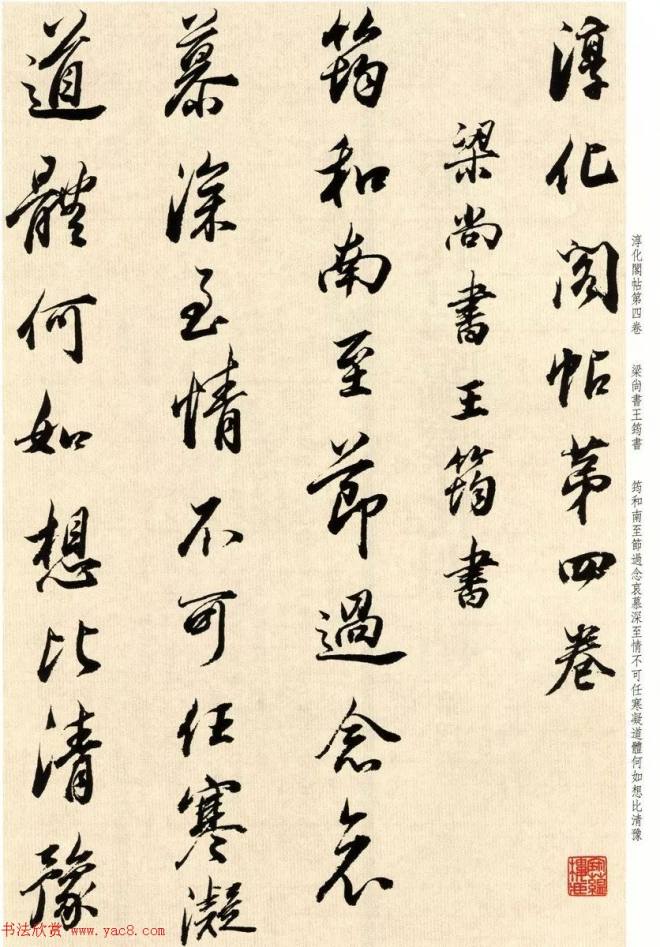 淳化阁帖第四卷
梁尚書王筠書
筠和南至節過念哀
慕深至情不可任寒凝
道體何如想比清豫
淳化閣帖第四卷 梁尚書王筠書 筠和南至節過念哀慕深至情不可任寒凝道體何如想比清豫
书法欣赏 www.yac8.com